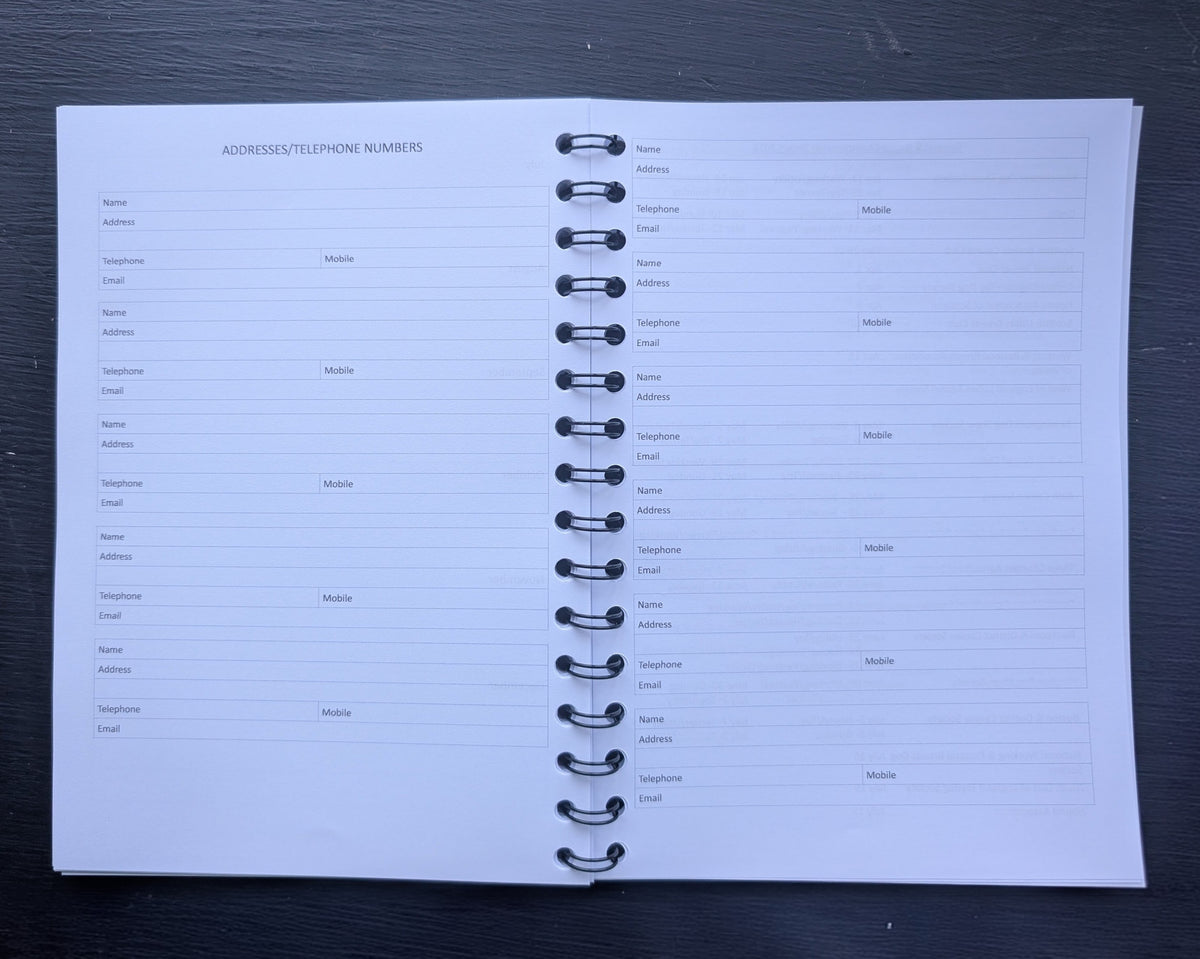 ADDRESSES/TELEPHONE NUMBERS
Name
Address
Telephone Mobile
Email
Name
Address
Telephone Mobile
Email
Name
Address
Telephone Mobile
Email
Name
Address
Telephone Mobile
Email
Name
Address
Telephone Mobile
Email
Name
Address
Telephone Mobile
Email
Name
Address
Telephone Mobile
Email
Name
Address
Telephone Mobile
Email
Name
Address
Telephone Mobile
Email
Name
Address
Telephone Mobile
Email
Name
Address
Telephone Mobile
Email